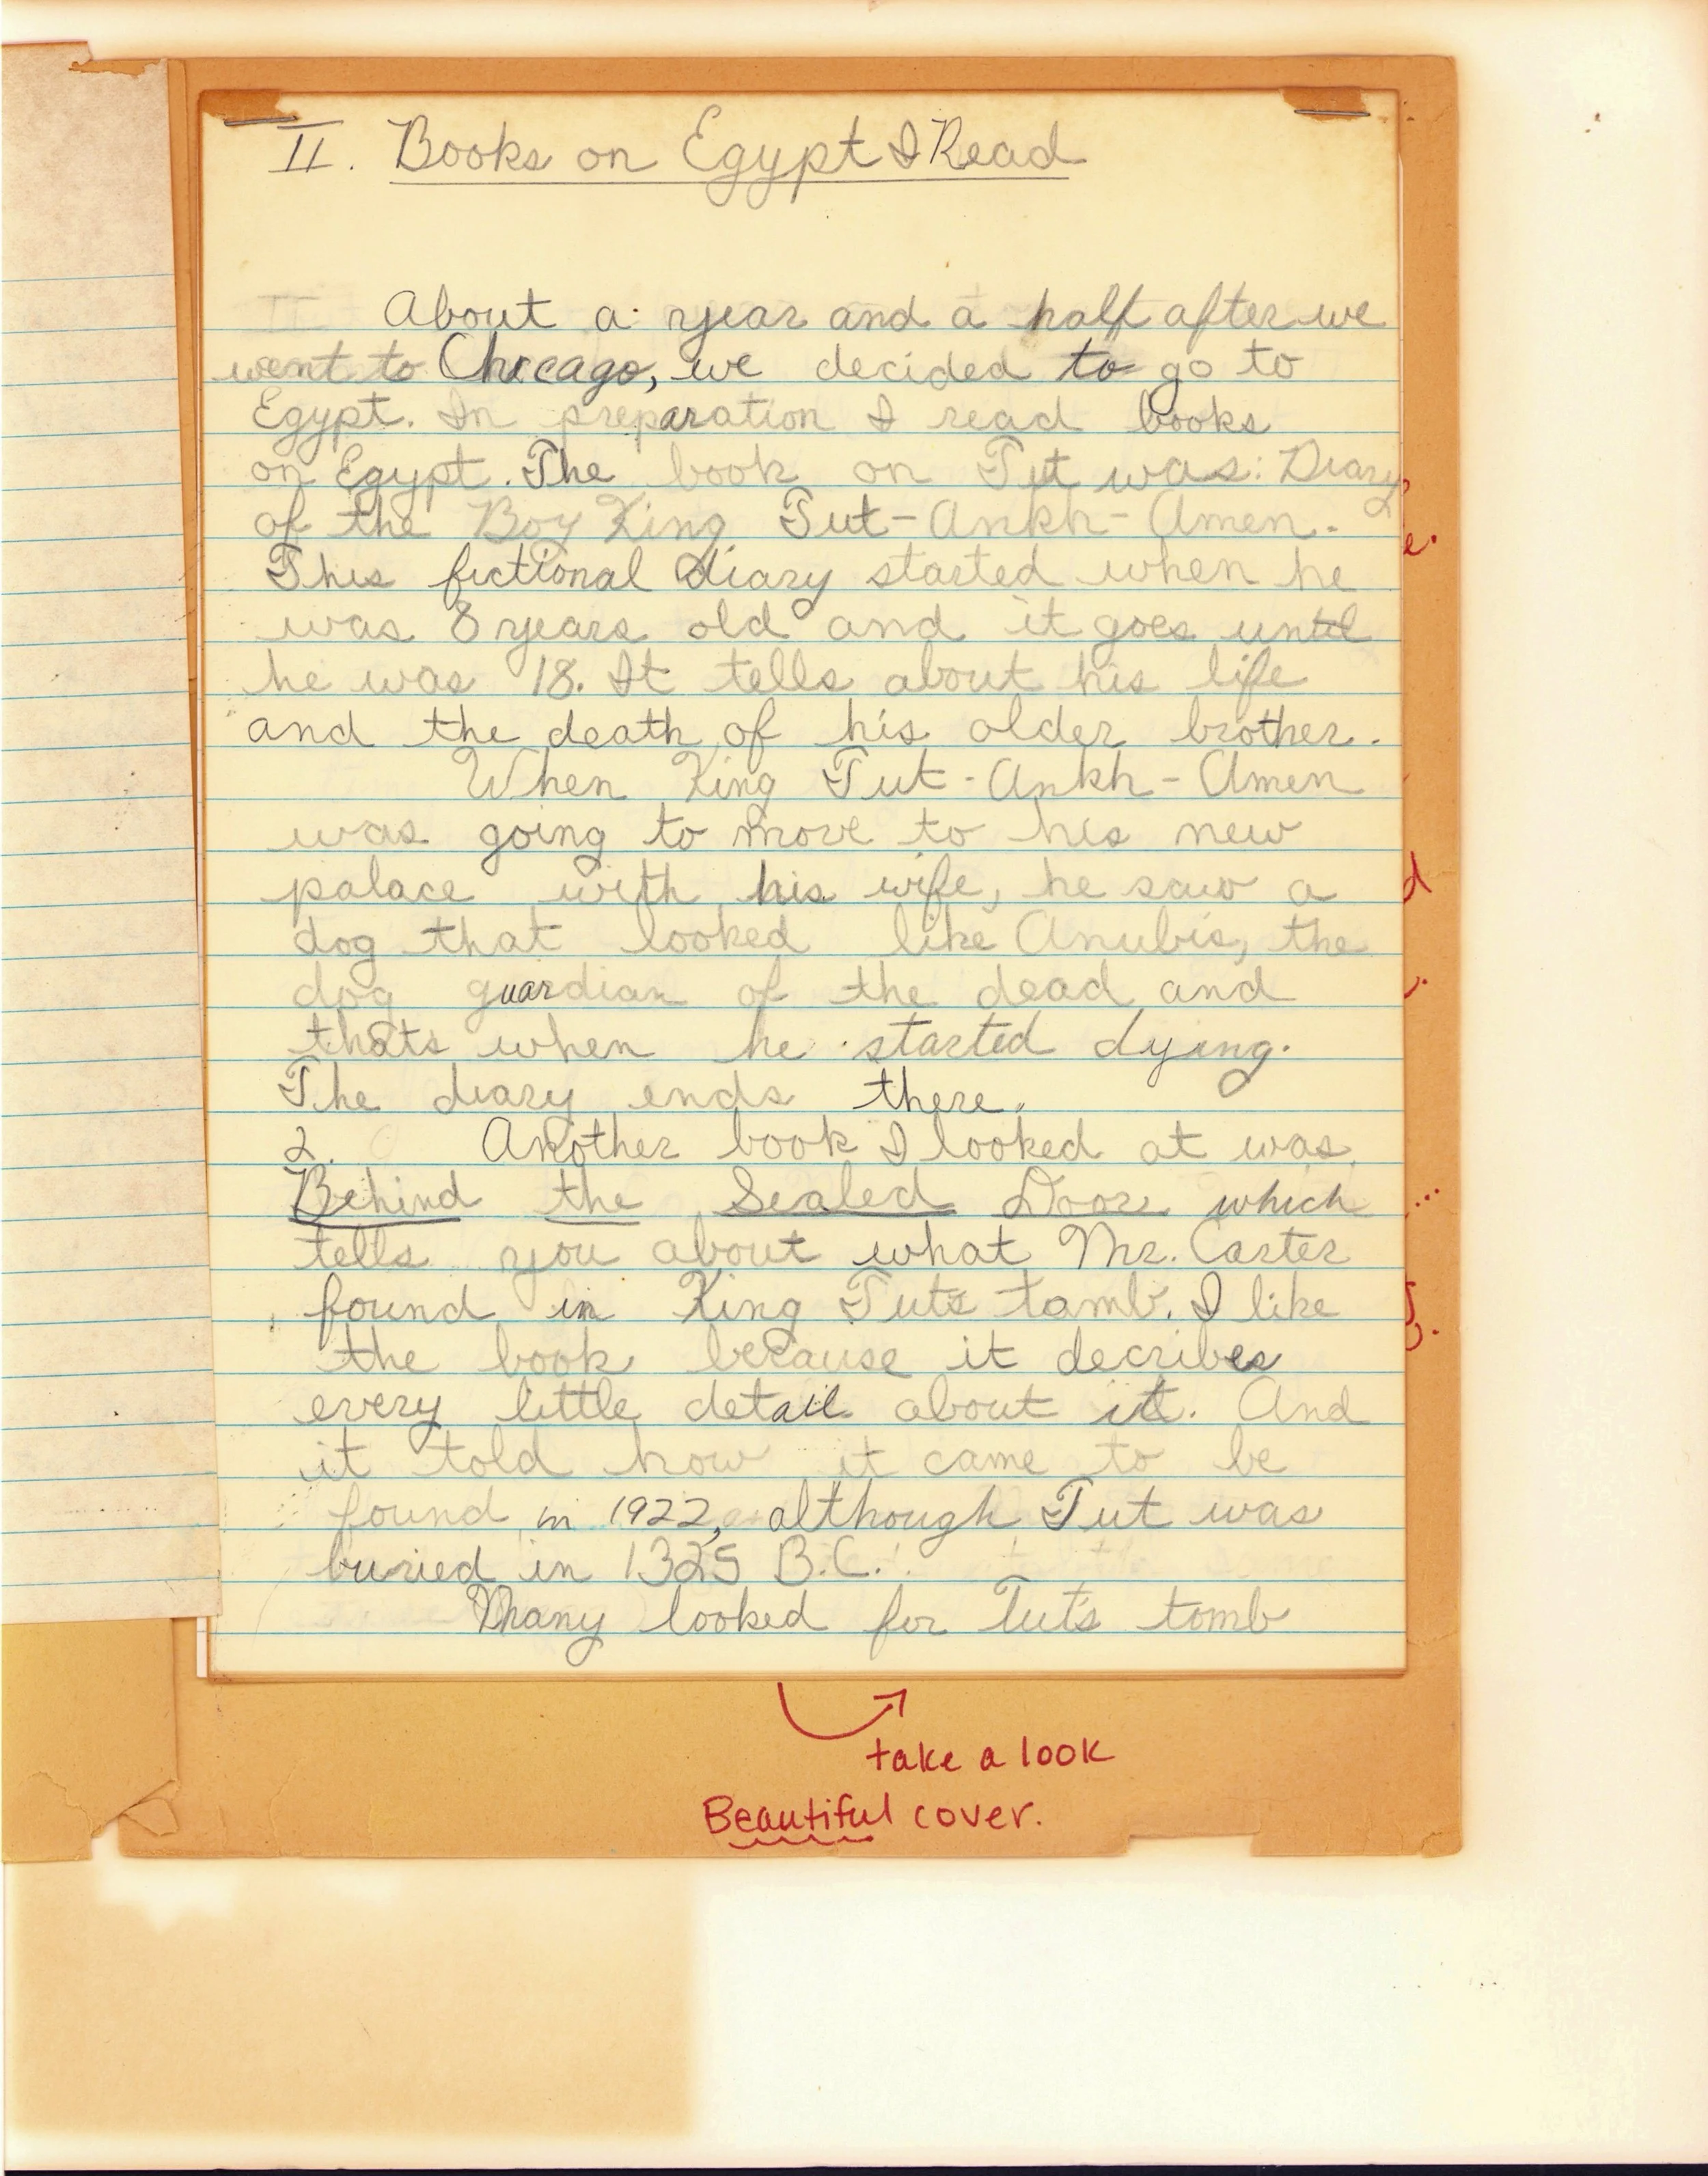 II. Books on Egypt I Read
About a year and a half after we
went to Chicago, we decided to go to
Egypt. In preparation I read books
on Egypt. The book on Tut was: Diary
of the Boy King Tut-Ankh-Amen.
This fictional diary started when he
was 8 years old and it goes until
he was 18. It tells about his life
and the death of his older brother.
When King Tut-Ankh-Amen
was going to move to his new
palace with his wife, he saw a
dog that looked like Anubis, the
dog guardian of the dead and
thats when he started dying.
The diary ends there.
2. Another book I looked at was
Behind the Sealed Door which
tells you about what Mr. Carter
found in King Tuts tomb. I like
the book because it decribes
every little detail about it. And
it told how it came to be
found in 1922, although Tut was
buried in 1325 B.C.
Many looked for Tut's tomb
take a look
Beautiful cover.